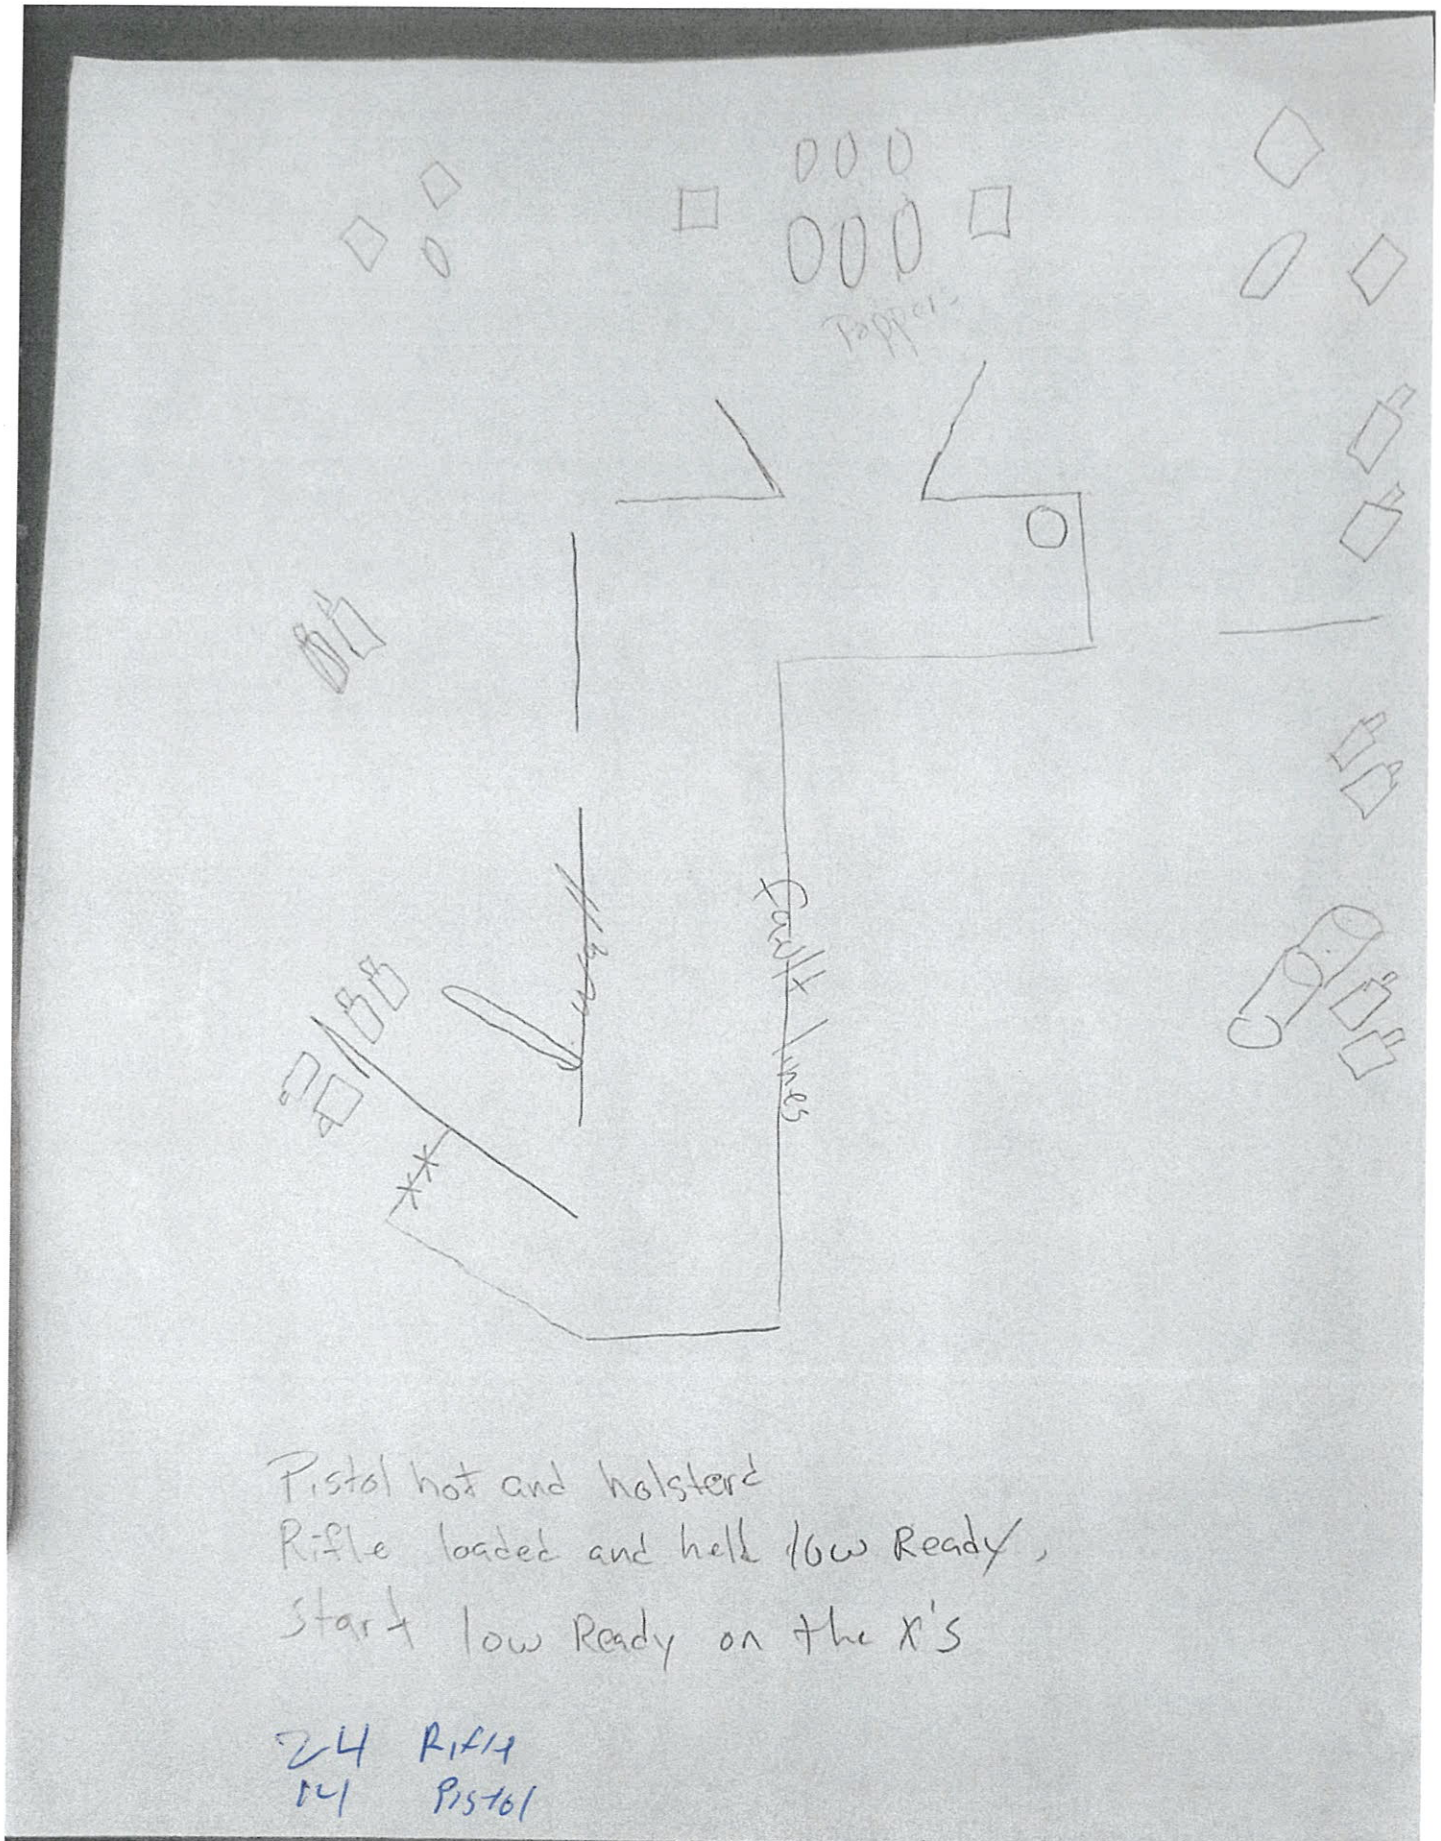 Popper
wall
fault lines
Pistol hot and holsterd
Rifle loaded and held low Ready,
start low Ready on the X's
24 Rifle
14 Pistol